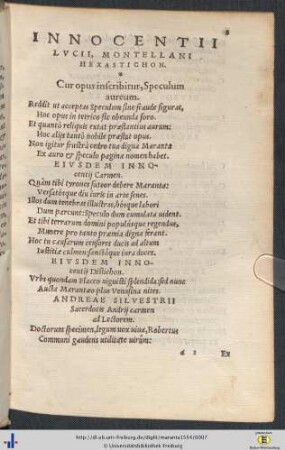 INNOCENTII
LVCII, MONTELLANI
HEXASTICHON.
Cur opus inscribitur, Speculum
aureum.
Reddit ut acceptas Speculum sine fraude figuras,
Hoc opus in tetrico sic obeunda foro.
Et quantò reliquis extat præstantius aurum:
Hoc alijs tantò nobile præstat opus.
Non igitur frustrà retro tua digna Maranta
Ex auro & speculo pagina nomen habet.
EIVSDEM INNO-
centij Carmen.
Quàm tibi tyrones debere Marantæ:
Versatosque diu iuris in arte senes.
Illos dum tenebras illustras, hosque labori
Dum parcunt: Speculo dum cumulata uident.
Et tibi terrarum domini populique regendus,
Munere pro tanto præmia digna ferant.
Hoc in causarum censores ducis ad altum
Iustitiæ culmen sanctaque iura doces.
EIVSDEM INNO-
centij Distichon.
Vrbs quondam Flacco uiguisti splendida sed nunc
Aucta Marantæo plus Venusina nites.
ANDREAE SILVESTRII
Sacerdotis Andrij carmen
ad Lectorem.
Doctorum specimen, legum uox uiua, Robertus
Communi gaudens utilitate uirûm:
Ex
http://dl.ub.uni-freiburg.de/diglit/maranta1554/0007
© Universitätsbibliothek Freiburg